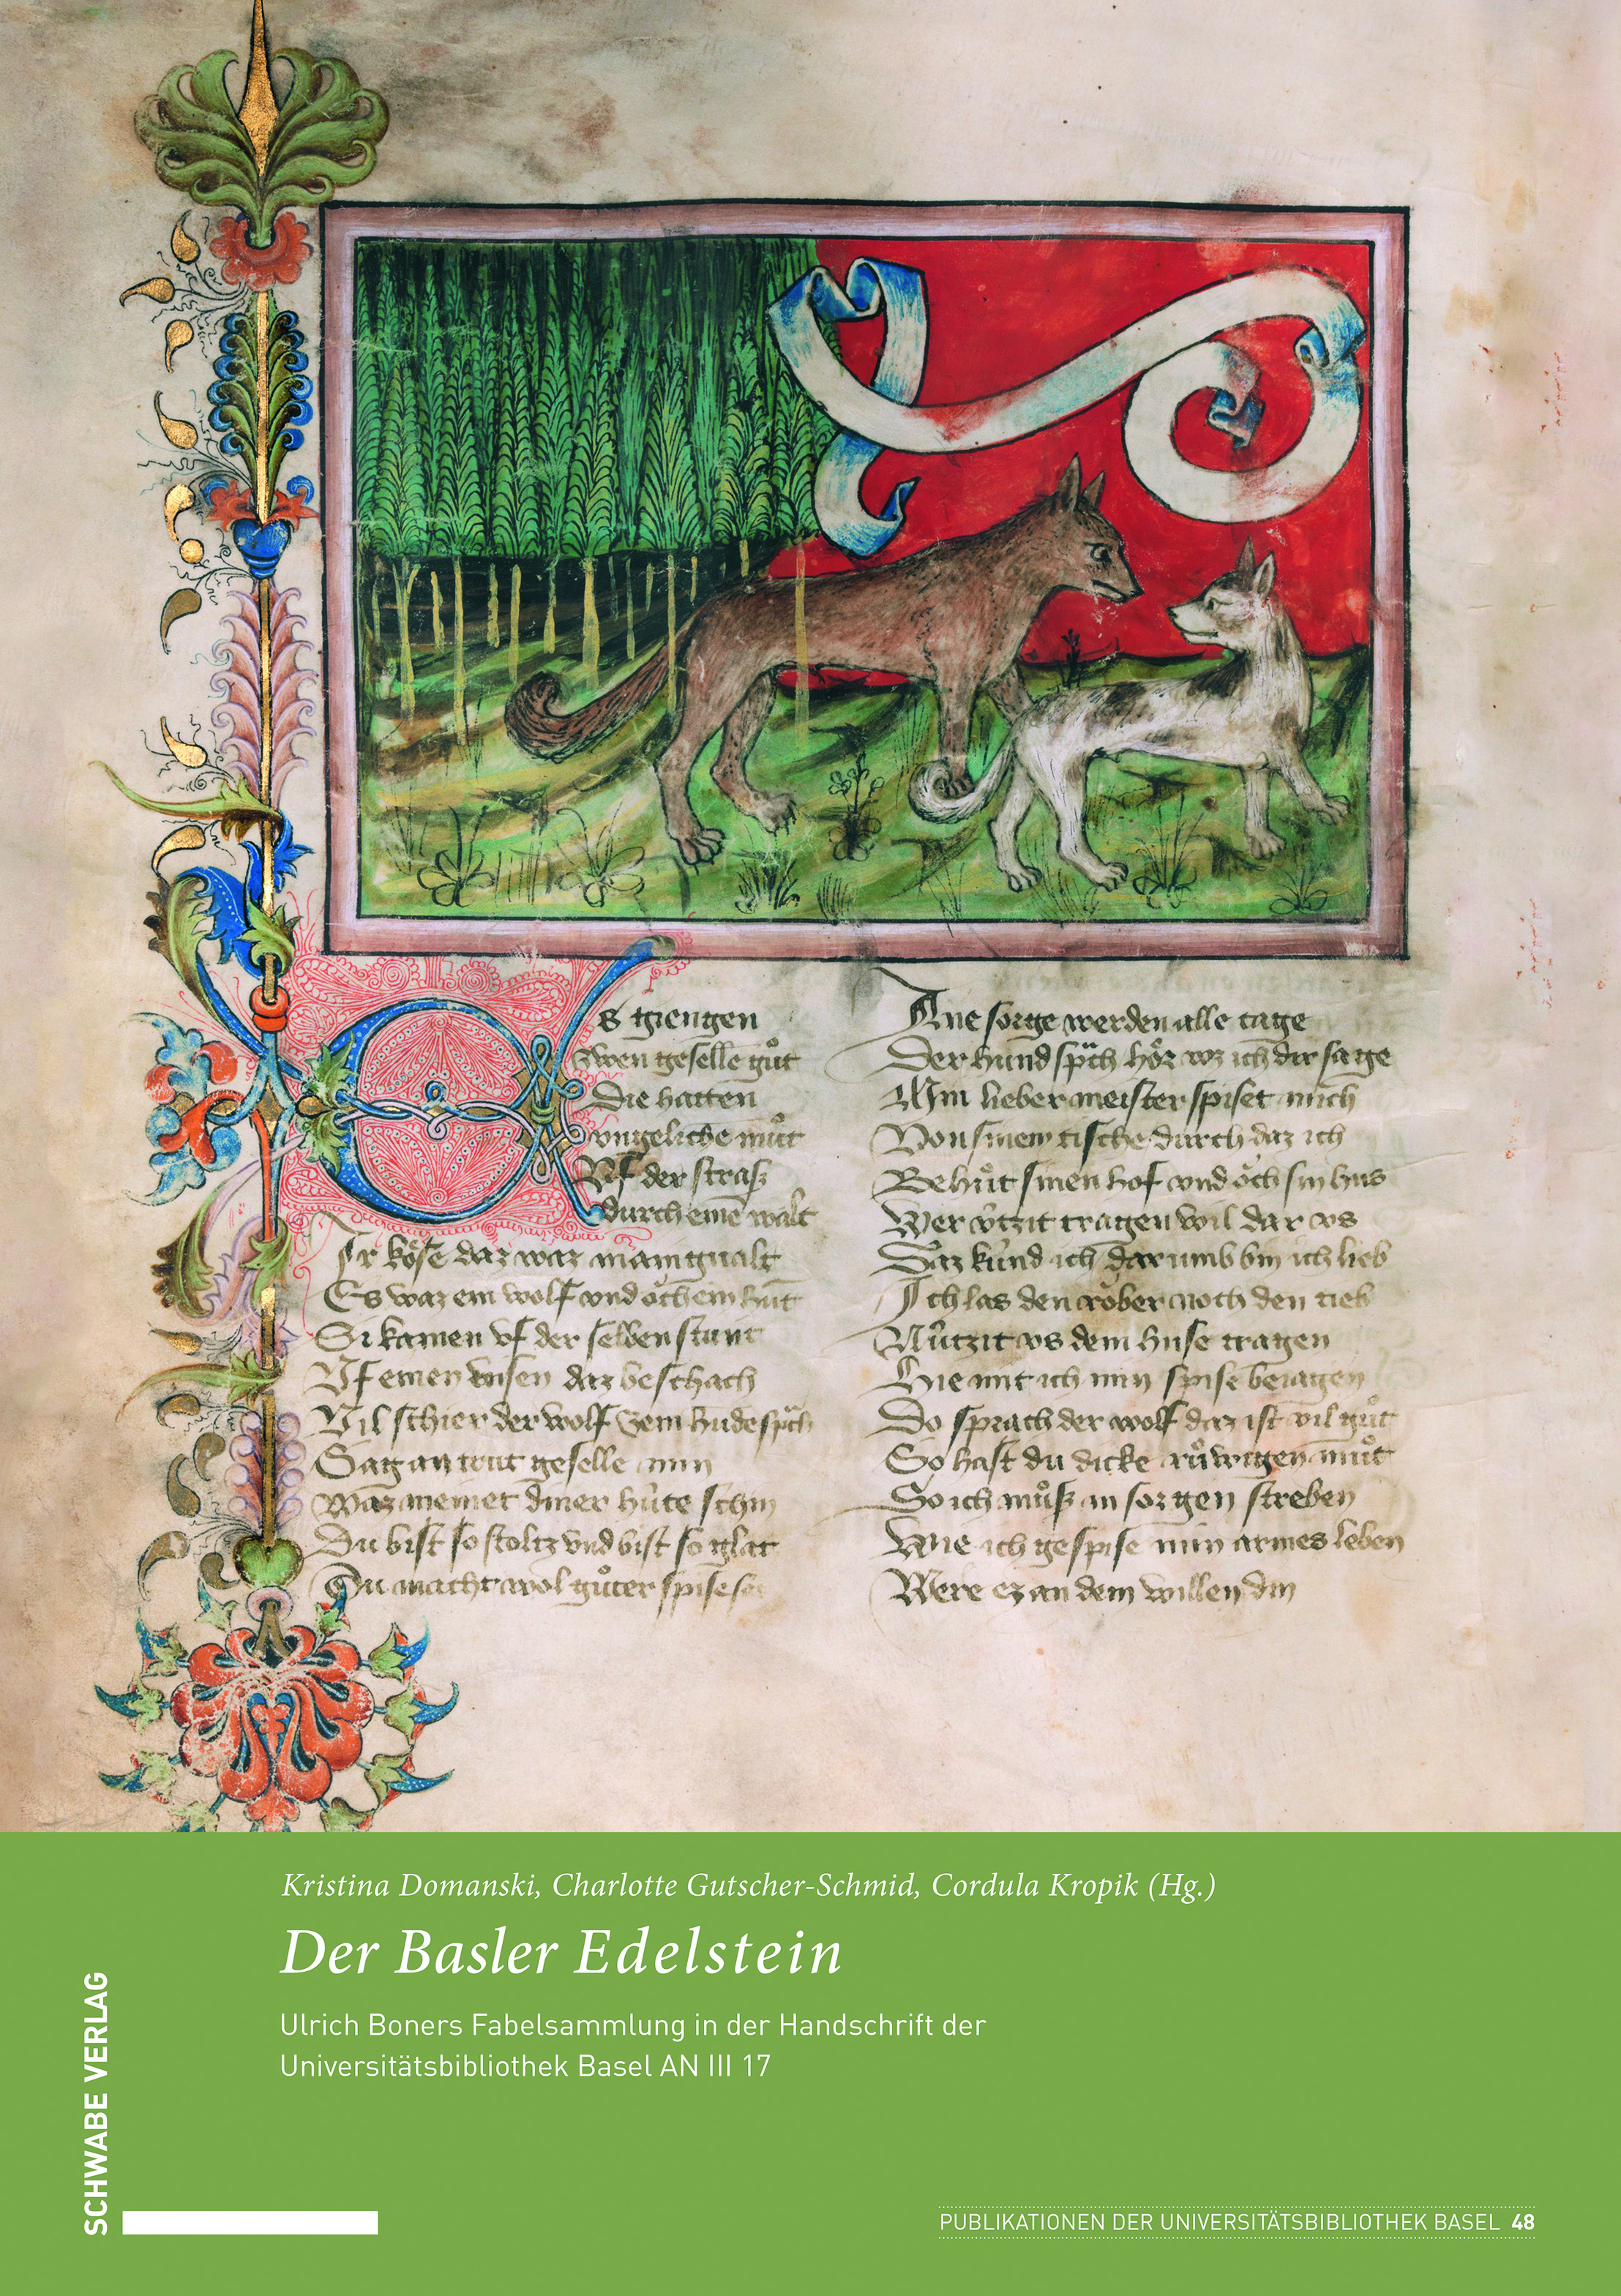 Es giengen
zwen geselle guͦt
Die hatten
vngeliche muͦt
Vf der straß
durch eine̅ walt
Ir koͤse daz waz manigualt
Es waz ein wolf vnd oͮch ein hu̅t
Si kamen vf der selben stunt
Vf einen wisen daz beschach
Vil schier der wolf zem hu̅de sp̈ch
Sag an trut geselle min
Waz meinet diner hüte schin
Du bist so stoltz vnd bist so glat
Du macht wol guͦter spise
Ane sorge werden alle tage
Der hund sp̈ch hoͤr wz ich dir sage
Min lieber meister spiset mich
Von sinem tische durch daz ich
Behuͤt sinen hof vnd oͮch sin hus
Wer üt̂zit tragen wil dar vs
Daz künd ich dar vmb bin ich lieb
Ich las den roͤber noch den tieb
Nützit vs dem huse tragen
Hie mit ich min spise beiagen
Do sprach der wolf daz ist vil guͦt
So hast du dicke ruͦwigen muͦt
So ich muͦß in sorgen streben
Wie ich gespise min armes leben
Were ez an dem willen din
Kristina Domanski, Charlotte Gutscher-Schmid, Cordula Kropik (Hg.)
Der Basler Edelstein
Ulrich Boners Fabelsammlung in der Handschrift der
Universitätsbibliothek Basel AN III 17
SCHWABE VERLAG
PUBLIKATIONEN DER UNIVERSITÄTSBIBLIOTHEK BASEL 48